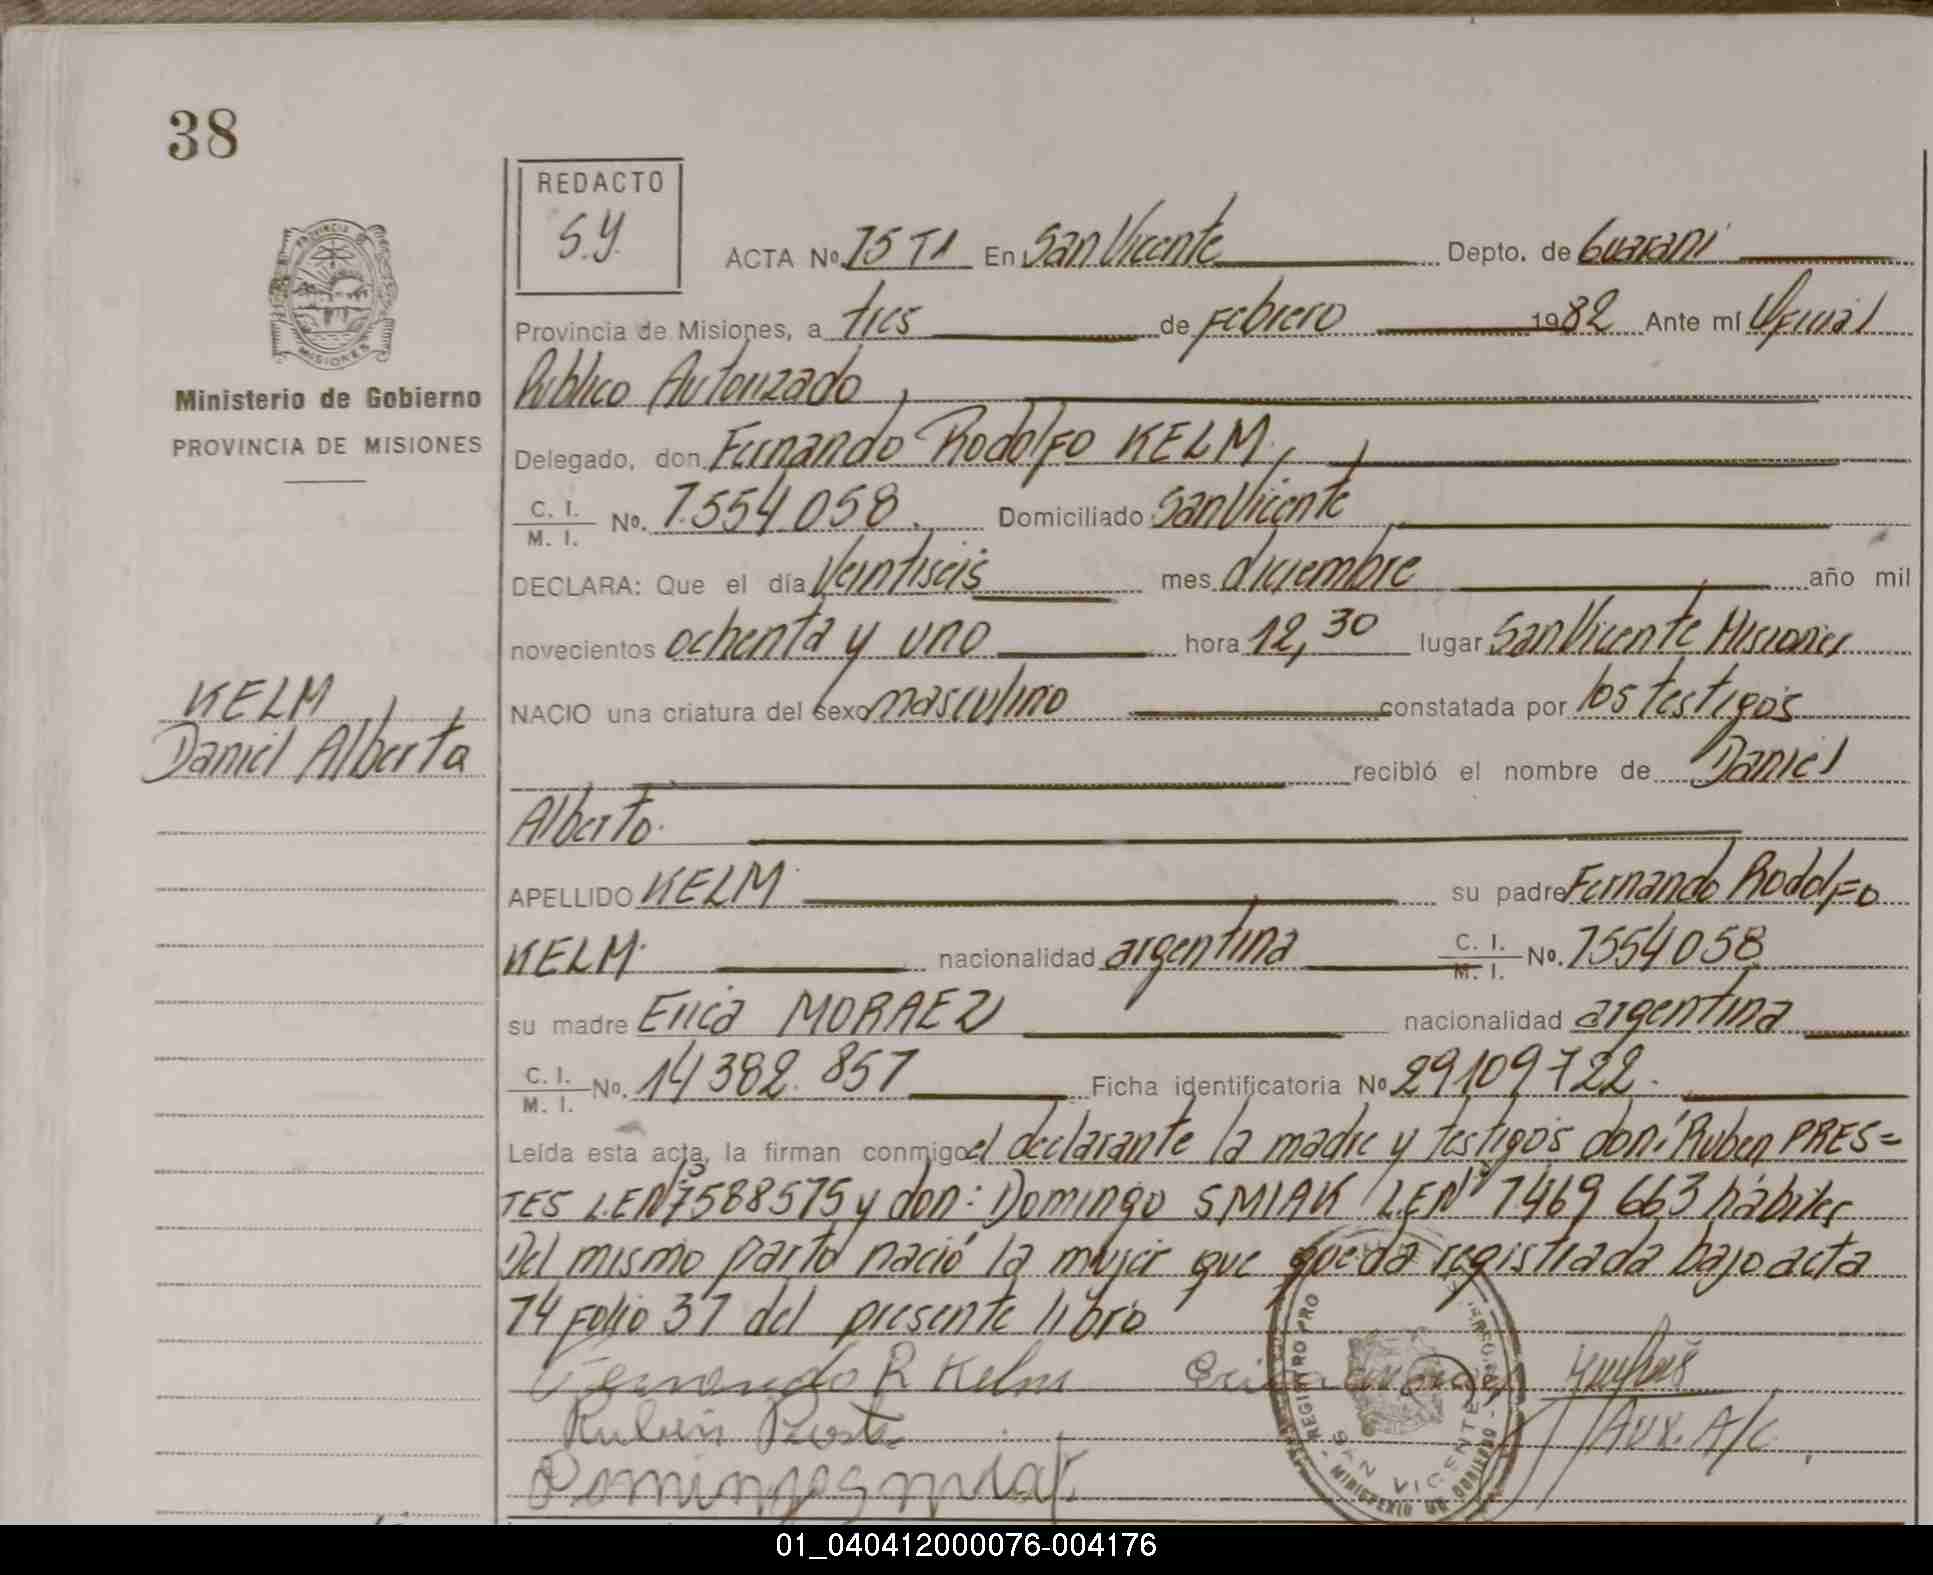 38
REDACTO
S.Y.
ACTA Nº 75 T1 En San Vicente Depto. de Guarani
Provincia de Misiones, a tres de Febrero 1982 Ante mí Oficial
Publico Autorizado,
Ministerio de Gobierno
PROVINCIA DE MISIONES
Delegado, don Fernando Rodolfo KELM,
C. I. / M. I. No. 7.554 058. Domiciliado San Vicente
DECLARA: Que el día Veintiseis mes diciembre año mil
novecientos ochenta y uno hora 12,30 lugar San Vicente Misiones
KELM
Daniel Alberto
NACIO una criatura del sexo masculino constatada por los testigos
recibió el nombre de Daniel
Alberto.
APELLIDO KELM su padre Fernando Rodolfo
KELM nacionalidad argentina C. I. / M. I. No. 7554058
su madre Erica MORAEZ nacionalidad argentina
C. I. / M. I. No. 14 382. 857 Ficha identificatoria Nº 29109722.
Leída esta acta, la firman conmigo el declarante la madre y testigos don: Ruben PRES=
TES L.E Nº 7588575 y don: Domingo SMIAK L.E Nº 7469 663 hábiles
Del mismo parto nació la mujer que queda registrada bajo acta
74 Folio 37 del presente libro
Fernando R Kelm
Aux. A/C
REGISTRO PRO
SAN VICENTE
MINISTERIO DE GOBIERNO
01_040412000076-004176